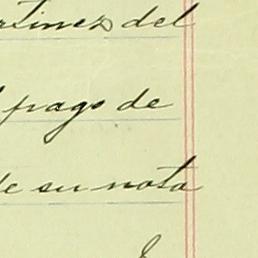 rtinez del
l pago de
de su nota